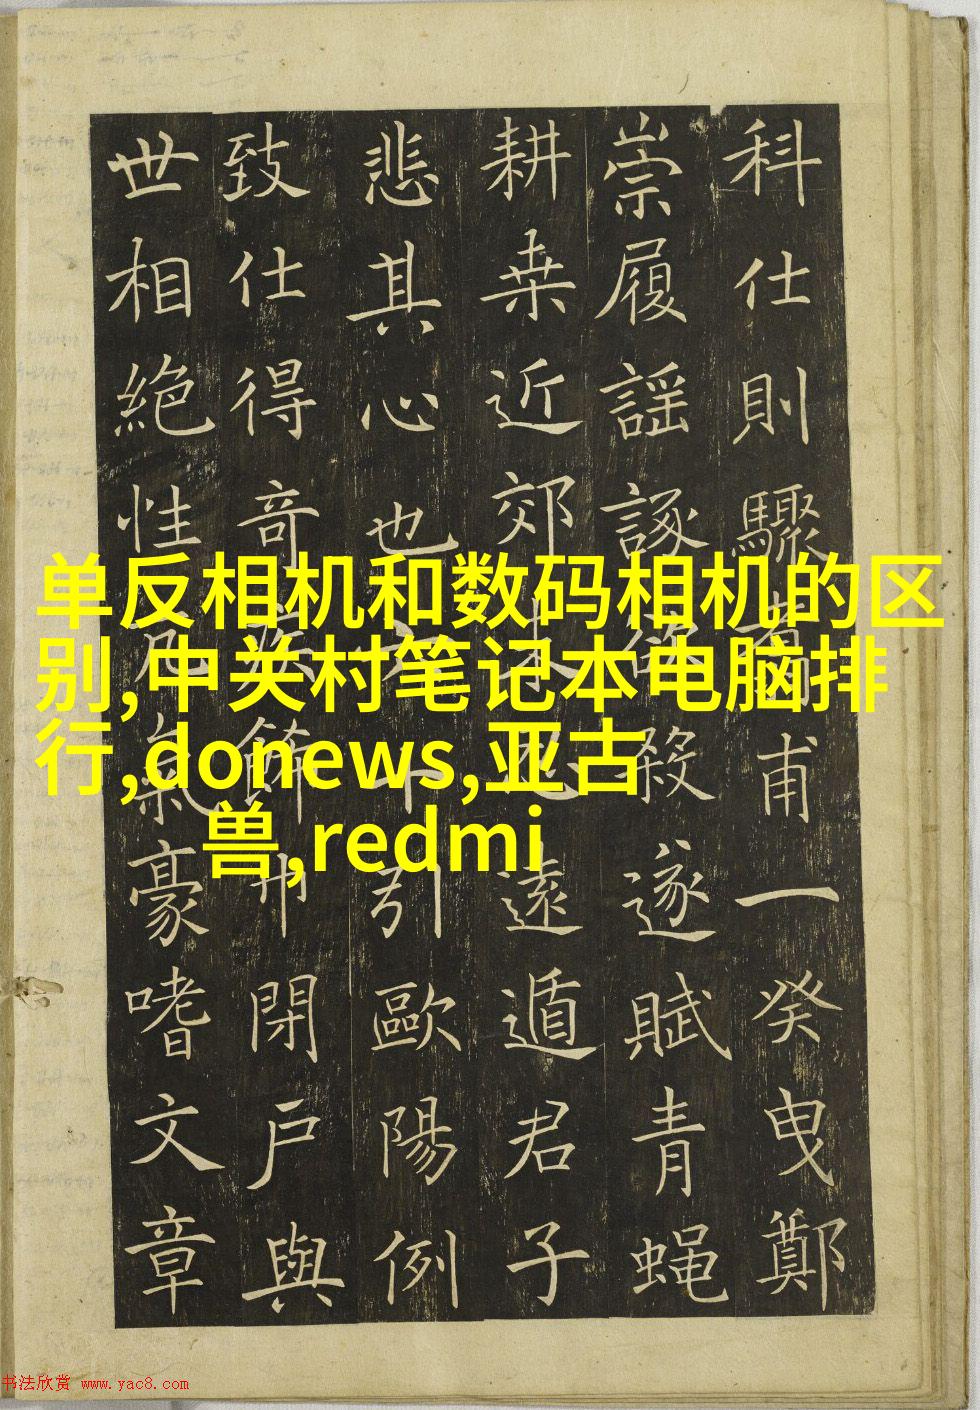 科仕則驟甫一癸曳鄭
崇履謡諑欲殺遂賦青蝇
耕桒近郊遠遁君子
悲其心也引歐陽例
致仕得奇飾巾閉戶與
世相絶性豪嗜文章
单反相机和数码相机的区
别,中关村笔记本电脑排
行,donews,亚古
兽,redmi
书法欣赏 www.yac8.com